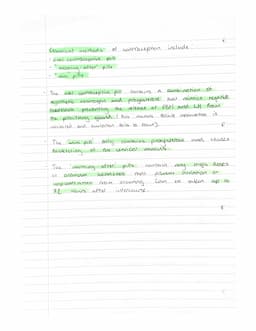 Chemical methods of contraception include
- oral contraceptive pill
- "morning after" pills
- "mini pills"
- The oral contraceptive pill contains a combination of
synthetic oestrogen and progesterone that mimics negative
feedback preventing the release of FSH and LH from
the pituitary gland (this means follicle
and ovulation fails to occur).
- The mini pill only contains progesterone and causes
thickening of the cervical mucus.
- The morning after pills contain very high doses
of hormones that prevent ovulation or
implantation from occurring. Can be taken up to
72 hours after intercourse.